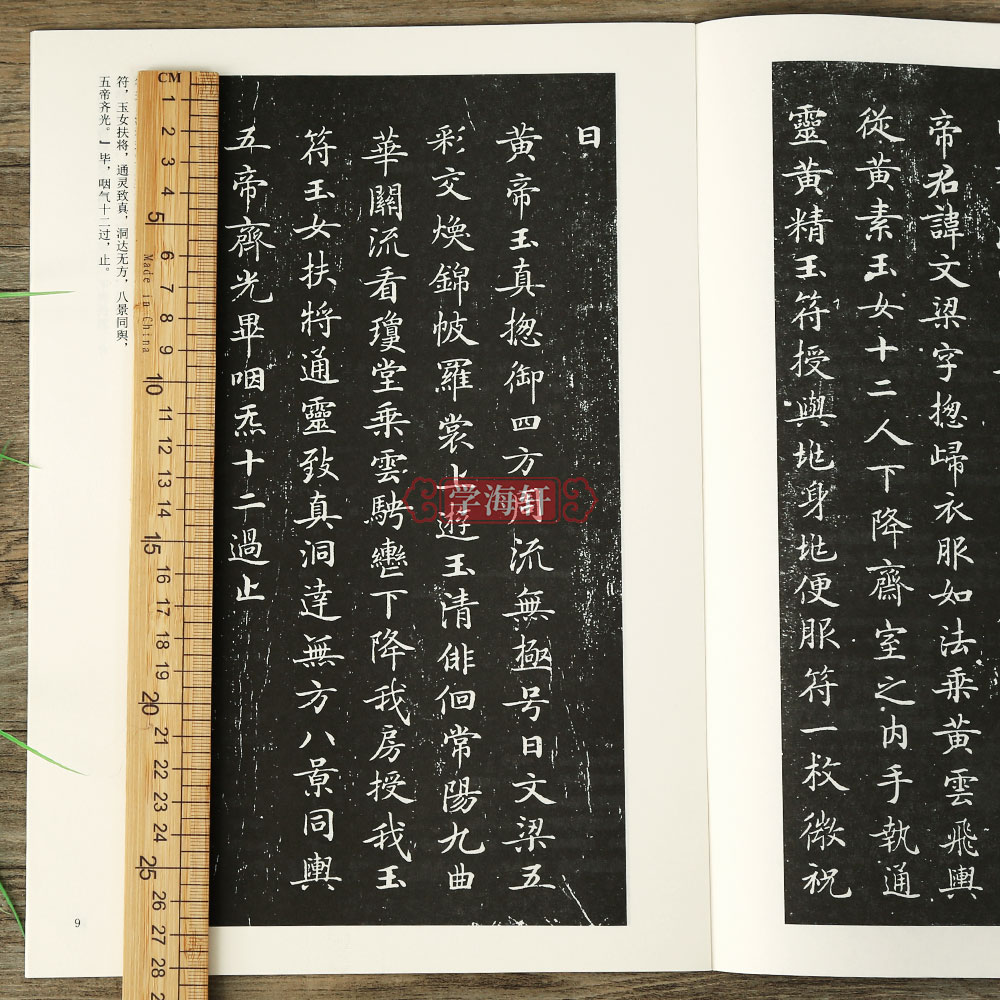 帝君諱文梁字揔歸衣服如法乘黄雲飛輿
從黄素玉女十二人下降齋室之内手執通
靈黄精玉符授與地身地便服符一枚微祝
曰
黄帝玉真揔御四方周流無極号曰文梁五
彩交煥錦帔羅裳上遊玉清俳佪常陽九曲
華關流看瓊堂乘雲駃轡下降我房授我玉
符玉女扶將通靈致真洞達無方八景同輿
五帝齊光畢咽炁十二過止
符，玉女扶将，通灵致真，洞达无方，八景同舆，
五帝齐光。』毕，咽气十二过，止。
9
学海轩
CM
1
2
3
4
5
6
7
8
9
10
11
12
13
14
15
16
17
18
19
20
21
22
23
24
25
26
27
28
Made in China